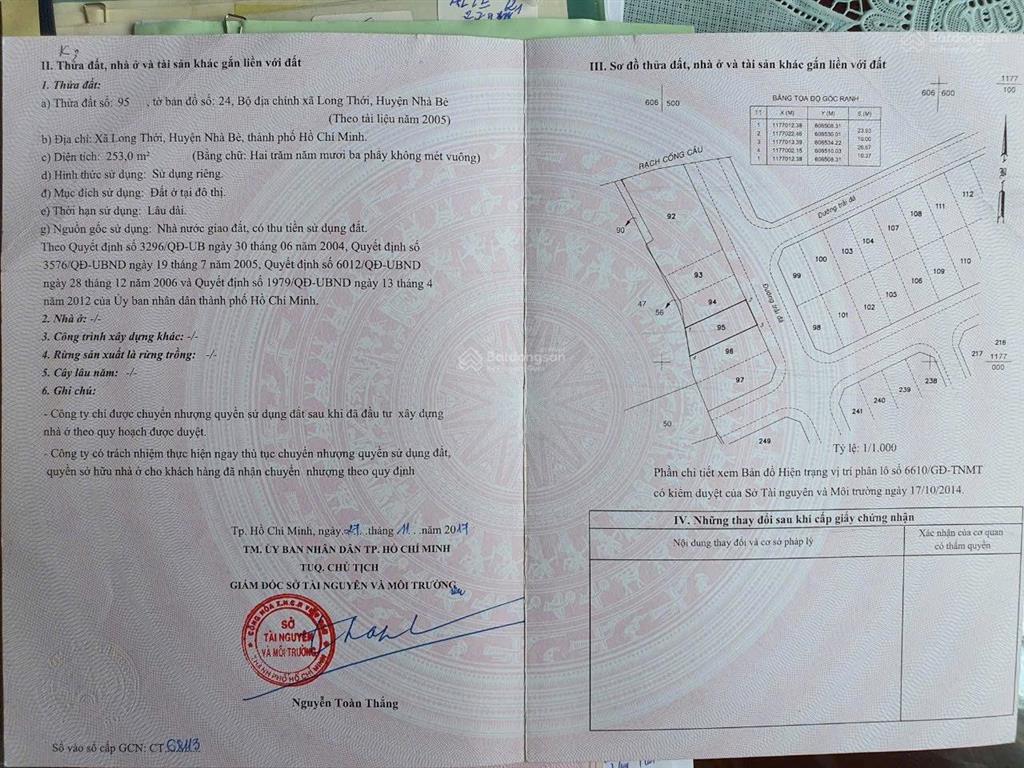 II. Thửa đất, nhà ở và tài sản khác gắn liền với đất
1. Thửa đất:
a) Thửa đất số: 95 , tờ bản đồ số: 24, Bộ địa chính xã Long Thới, Huyện Nhà Bè
(Theo tài liệu năm 2005)
b) Địa chỉ: Xã Long Thới, Huyện Nhà Bè, thành phố Hồ Chí Minh.
c) Diện tích: 253,0 m² (Bằng chữ: Hai trăm năm mươi ba phẩy không mét vuông)
d) Hình thức sử dụng: Sử dụng riêng.
đ) Mục đích sử dụng: Đất ở tại đô thị.
e) Thời hạn sử dụng: Lâu dài.
g) Nguồn gốc sử dụng: Nhà nước giao đất, có thu tiền sử dụng đất.
Theo Quyết định số 3296/QĐ-UB ngày 30 tháng 06 năm 2004, Quyết định số
3576/QĐ-UBND ngày 19 tháng 7 năm 2005, Quyết định số 6012/QĐ-UBND
ngày 28 tháng 12 năm 2006 và Quyết định số 1979/QĐ-UBND ngày 13 tháng 4
năm 2012 của Ủy ban nhân dân thành phố Hồ Chí Minh.
2. Nhà ở: -/-
3. Công trình xây dựng khác: -/-
4. Rừng sản xuất là rừng trồng: -/-
5. Cây lâu năm: -/-
6. Ghi chú:
- Công ty chỉ được chuyển nhượng quyền sử dụng đất sau khi đã đầu tư xây dựng
nhà ở theo quy hoạch được duyệt.
- Công ty có trách nhiệm thực hiện ngay thủ tục chuyển nhượng quyền sử dụng đất,
quyền sở hữu nhà ở cho khách hàng đã nhận chuyển nhượng theo quy định
Tp. Hồ Chí Minh, ngày 27 tháng 11 năm 2017
TM. ỦY BAN NHÂN DÂN TP. HỒ CHÍ MINH
TUQ. CHỦ TỊCH
GIÁM ĐỐC SỞ TÀI NGUYÊN VÀ MÔI TRƯỜNG
SỞ
TÀI NGUYÊN
VÀ MÔI TRƯỜNG
THÀNH PHỐ HỒ CHÍ MINH
Nguyễn Toàn Thắng
Số vào sổ cấp GCN: CT 68113
Batdongsan
III. Sơ đồ thửa đất, nhà ở và tài sản khác gắn liền với đất
606 500
606 600
1177
100
BẢNG TỌA ĐỘ GÓC RANH
TT X (M) Y (M) S (M)
1 1177012.38 606508.31
23.93
2 1177022.46 606530.01
10.00
3 1177013.39 606534.22
26.67
4 1177002.15 606510.03
10.37
1 1177012.38 606508.31
RẠCH CỐNG CẦU
Đường trải đá
Đường trải đá
92
90
93
94
47
56
95
96
97
50
249
99
100
103
104
107
108
111
112
98
101
102
105
106
109
110
216
217
1177
000
238
239
240
241
Tỷ lệ: 1/1.000
Phần chi tiết xem Bản đồ Hiện trạng vị trí phân lô số 6610/GĐ-TNMT
có kiểm duyệt của Sở Tài nguyên và Môi trường ngày 17/10/2014.
IV. Những thay đổi sau khi cấp giấy chứng nhận
Nội dung thay đổi và cơ sở pháp lý
Xác nhận của cơ quan
có thẩm quyền